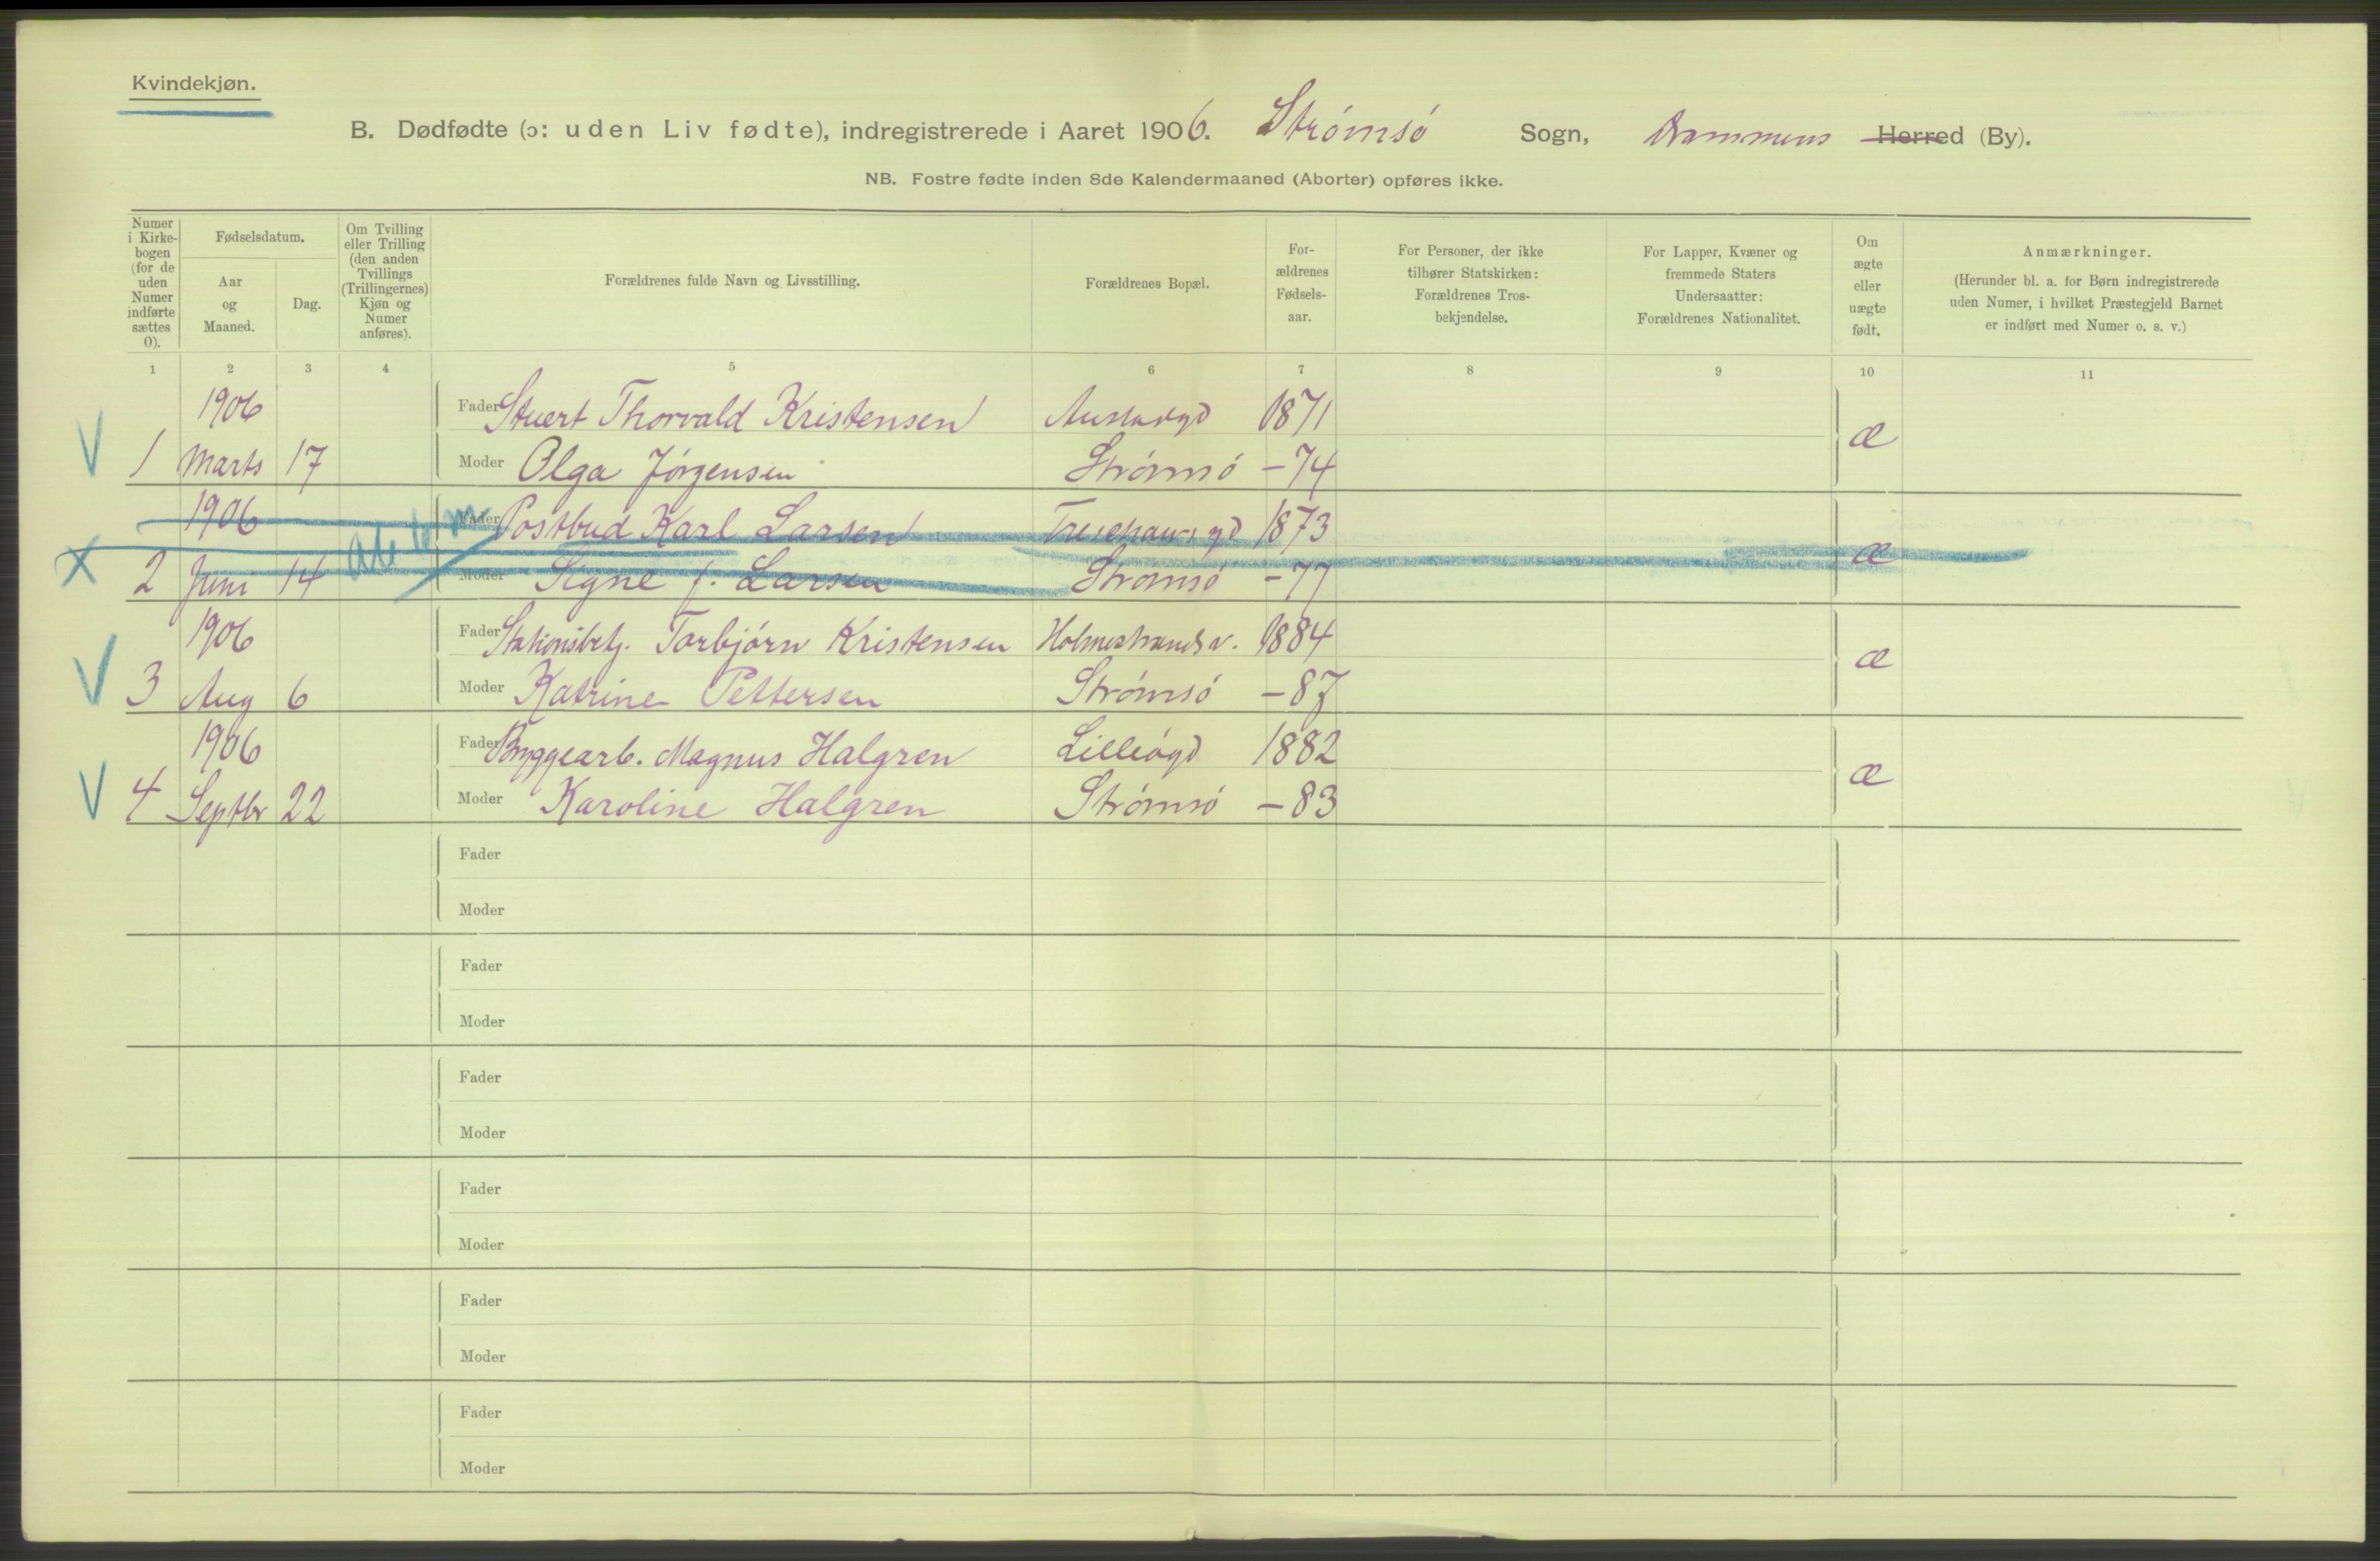 Kvindekjøn.
B. Dødfødte (ɔ: uden Liv fødte), indregistrerede i Aaret 1906. Strømsø Sogn, Drammens Herred (By).
NB. Fostre fødte inden 8de Kalendermaaned (Aborter) opføres ikke.
Numer i Kirkebogen (for de uden Numer indførte sættes 0).
Fødselsdatum.
Aar og Maaned.
Dag.
Om Tvilling eller Trilling (den anden Tvillings (Trillingernes) Kjøn og Numer anføres).
Forældrenes fulde Navn og Livsstilling.
Forældrenes Bopæl.
Forældrenes Fødselsaar.
For Personer, der ikke tilhører Statskirken: Forældrenes Trosbekjendelse.
For Lapper, Kvæner og fremmede Staters Undersaatter: Forældrenes Nationalitet.
Om ægte eller uægte født.
Anmærkninger.
(Herunder bl. a. for Børn indregistrerede uden Numer, i hvilket Præstegjeld Barnet er indført med Numer o. s. v.)
1 2 3 4 5 6 7 8 9 10 11
1906 Fader Stuert Thorvald Kristensen Austadgd 1871
V 1 Marts 17 Moder Olga Jörgensen Strömsö - 74 æ
1906 Fader Postbud Karl Larsen gd 1873
x 2 Juni 14 Moder Signe f. Larsen Strömsö - 77 æ
1906 Fader Stationsbetj. Torbjörn Kristensen Holmestrandsv. 1884
V 3 Aug 6 Moder Katrine Pettersen Strömsö - 87 æ
1906 Fader Byggearb. Magnus Halgren Lilleögd 1882
V 4 Septbr 22 Moder Karoline Halgren Strömsö - 83 æ
Fader
Moder
Fader
Moder
Fader
Moder
Fader
Moder
Fader
Moder
Fader
Moder